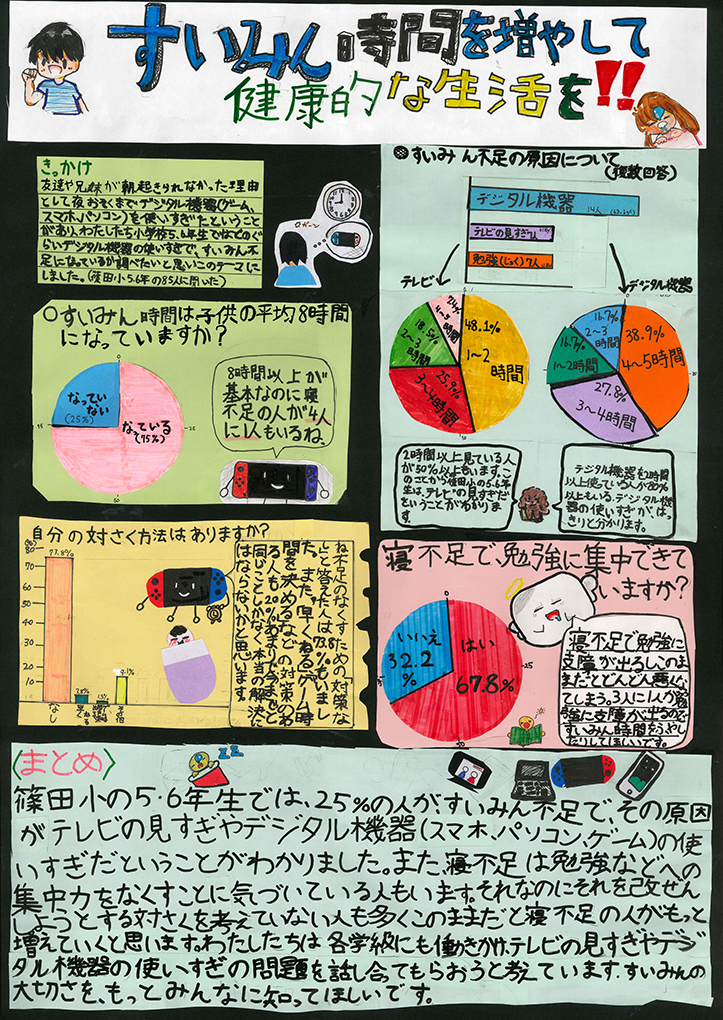 すいみん時間を増やして
健康的な生活を!!
きっかけ
友達や兄妹が朝起きられなかった理由
として夜おそくまでデジタル機器(ゲーム、
スマホ、パソコン)を使いすぎたということ
があり、わたしたち小学校5、6年生ではどのぐ
らいデジタル機器の使いすぎで、すいみん不
足になっているか調べたいと思いこのテーマに
しました。(篠田小5.6年の85人に聞いた)
◎すいみん不足の原因について
(複数回答)
デジタル機器
14人
テレビの見すぎ
勉強(じゅく)7人
テレビ
デジタル機器
48.1%
1〜2
時間
25.9%
3〜4時間
18.5%
2〜3
時間
4〜5
時間
38.9%
4〜5時間
27.8%
3〜4時間
16.7%
1〜2時間
16.7%
2〜3
時間
2時間以上見ている人
が50%以上もいます。こ
のことから篠田小の5.6年
生は、テレビの見すぎだ
ということがわかりま
す。
デジタル機器を2時間
以上使っている人が80%
以上もいる。デジタル機
器の使いすぎが、は、
きりと分かります。
○すいみん時間は子供の平均8時間
になっていますか?
なってい
ない
(25%)
なっている
(75%)
8時間以上が
基本なのに寝
不足の人が4人
に1人もいるね。
自分の対さく方法はありますか?
(%)
80
70
60
50
40
30
20
10
77.8%
9.1%
なし
その他
ね不足のなくすための「対策な
し」と答えた人は73.8%もいまし
た。また。早くねる、ゲーム時
間を決めるなどの対策のあ
る人も20%あまりで今までと
同じことしかなく本当の解決に
はならないかと思います。
寝不足で、勉強に集中できて
いますか?
いいえ
32.2
%
はい
67.8%
0
25
50
寝不足で勉強に
支障が出るし、このま
まだとどんどん悪くなっ
てしまう。3人に1人が勉
強に支障が出るので
すいみん時間をふやし
たりしてほしいです。
〈まとめ〉
篠田小の5.6年生では、25%の人がすいみん不足で、その原因
がテレビの見すぎやデジタル機器(スマホ、パソコン、ゲーム)の使
いすぎだということがわかりました。また、寝不足は勉強などへの
集中力をなくすことに気づいている人もいます。それなのにそれを改ぜん
しようとする対さくを考えていない人も多くこのままだと寝不足の人がもっと
増えていくと思います。わたしたちは各学級にも働きかけ、テレビの見すぎやデジ
タル機器の使いすぎの問題を話し合ってもらおうと考えています。すいみんの
大切さを、もっとみんなに知ってほしいです。